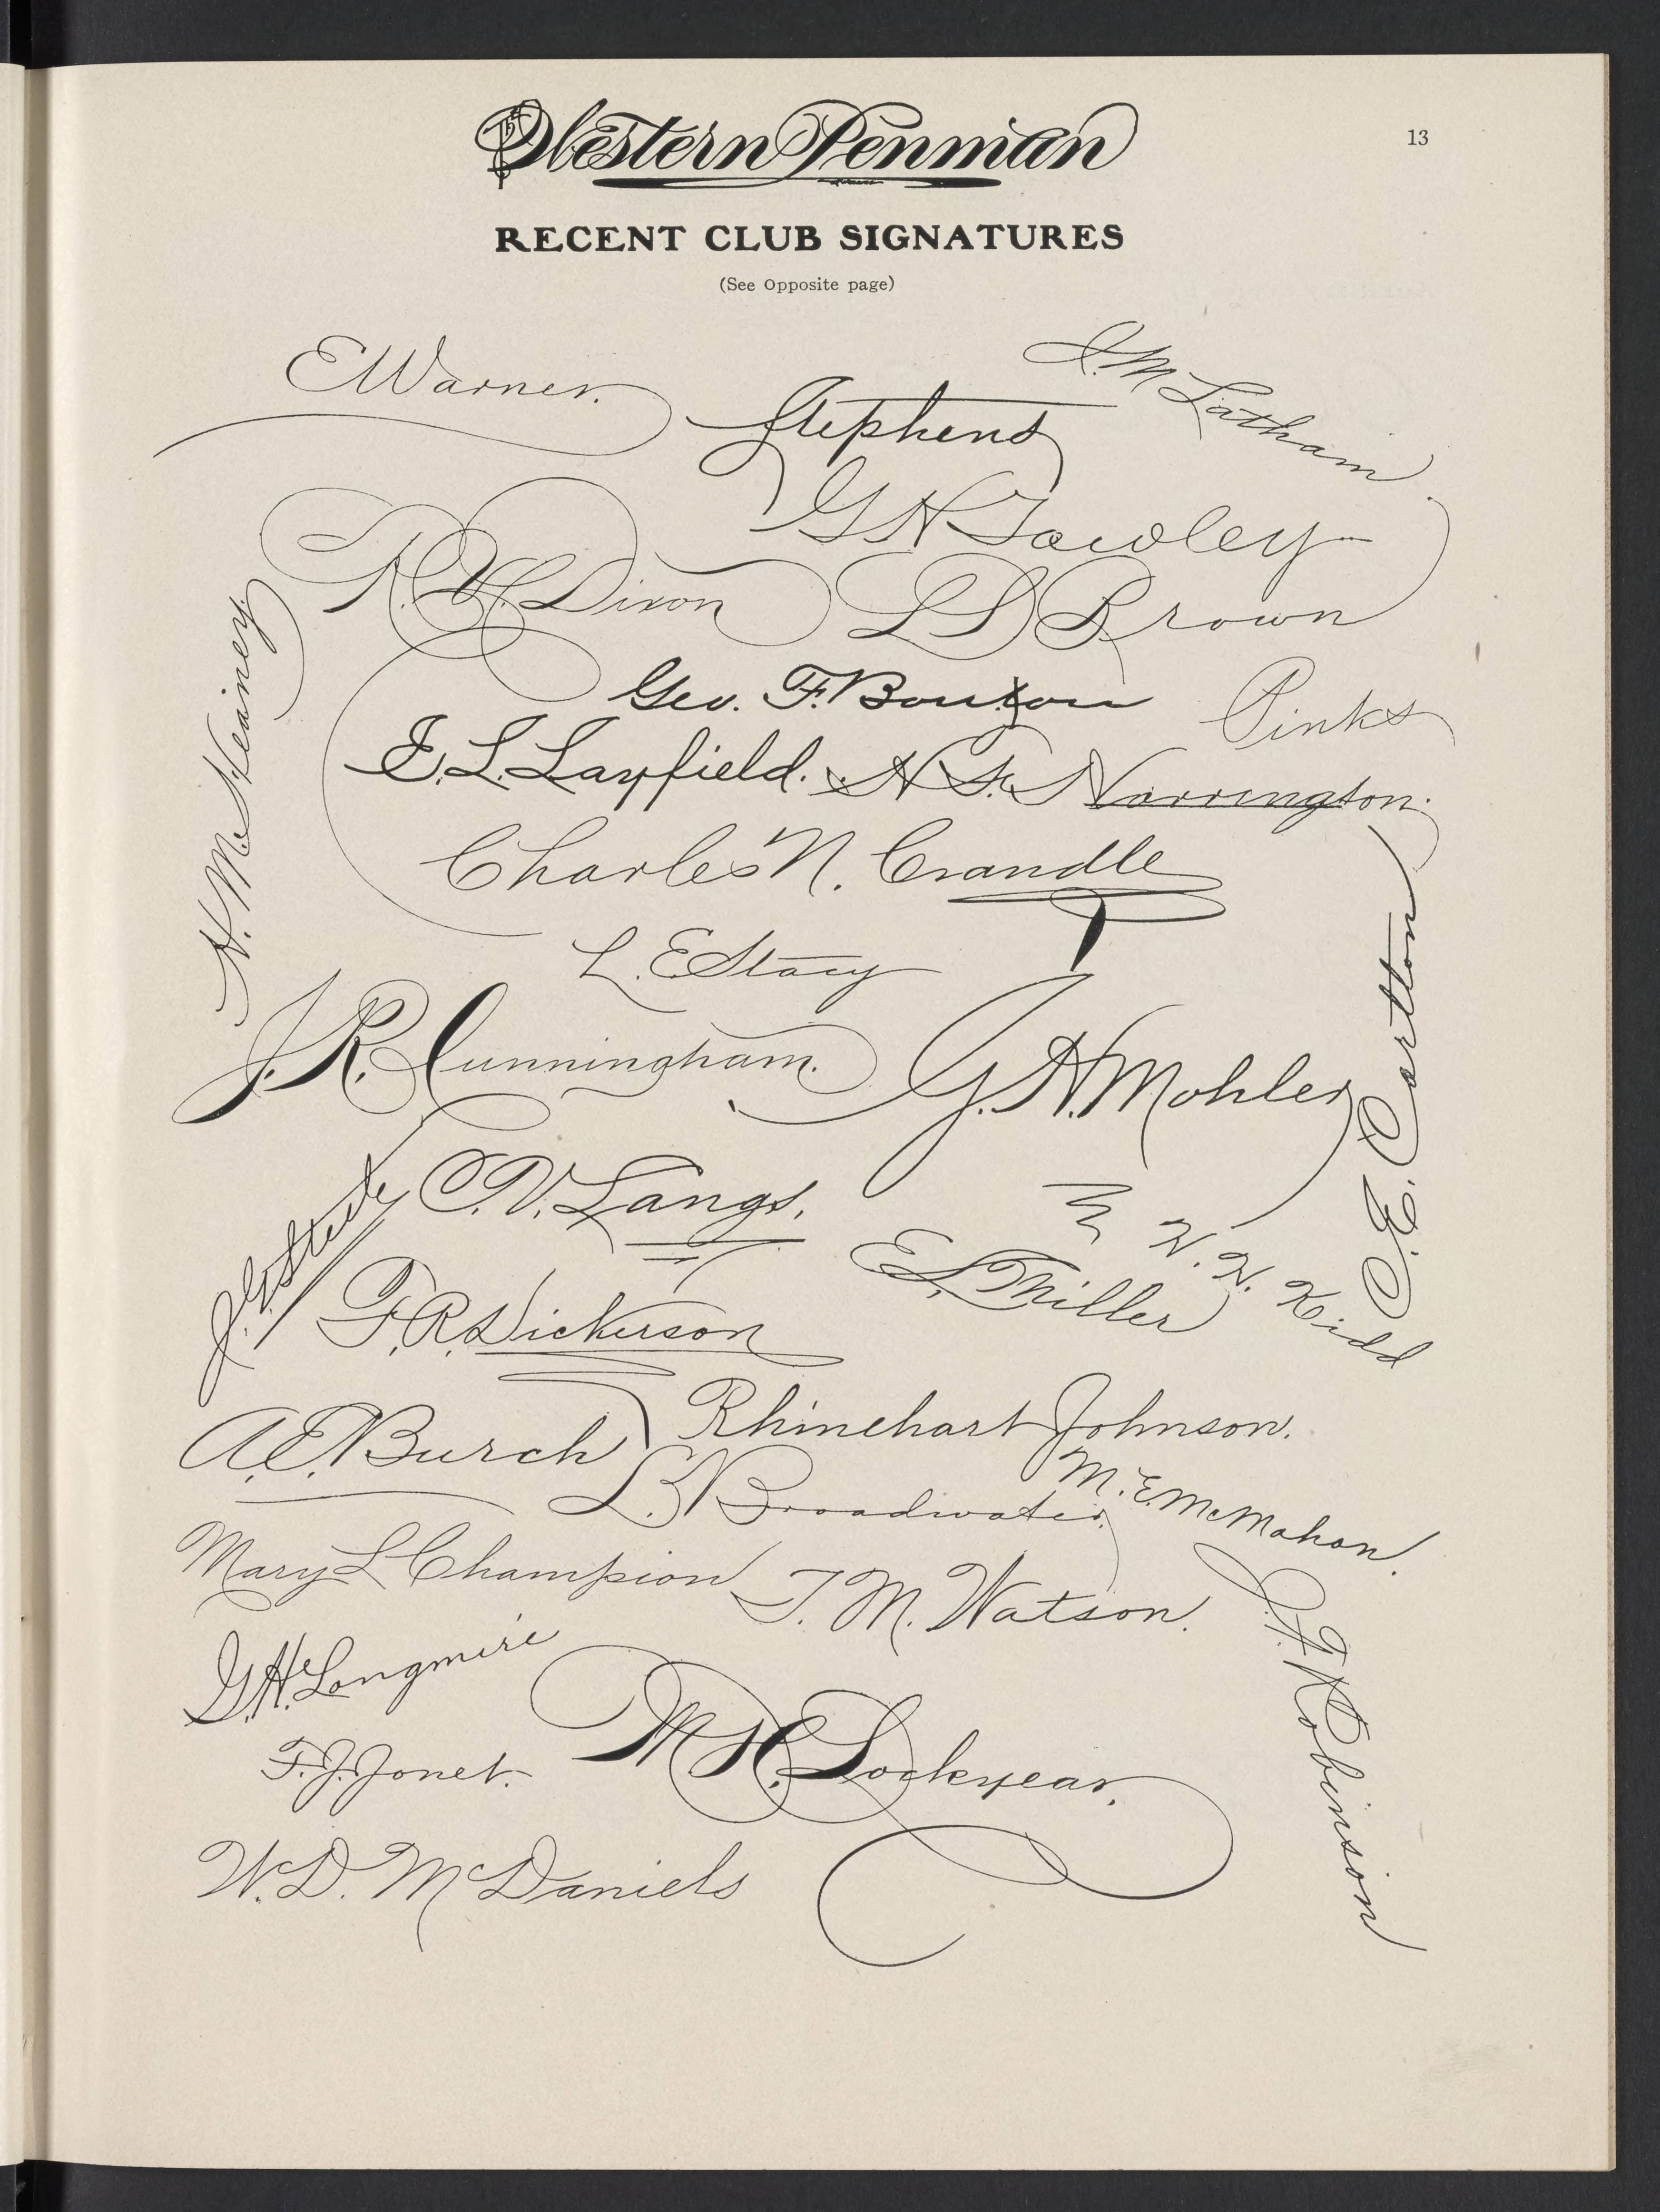 Western Penman
13
RECENT CLUB SIGNATURES
(See Opposite page)
E Warner.
I. M Latham
Stephens
G H Gowley
R. H. Dixon
L S Brown
H. McHeainey.
Geo. F. Bouxon
Pinks
E. L. Layfield.
N. S. Norrington.
Charles N. Crandle
L. E Stacy
C. E. Carlton
J. R. Cunningham.
G. H. Mohler
C. V. Langs.
W. N. Kidd
E. L. Miller
F. R. Dickerson
Rhinehart Johnson.
A. E. Burch
L. B Broadwater
M. E. McMahon.
Mary L Champion
T. M. Watson.
J. F. Robinson
G. H. Longmire
M. H. Lockyear.
F. J. Jonet.
W. D. McDaniels